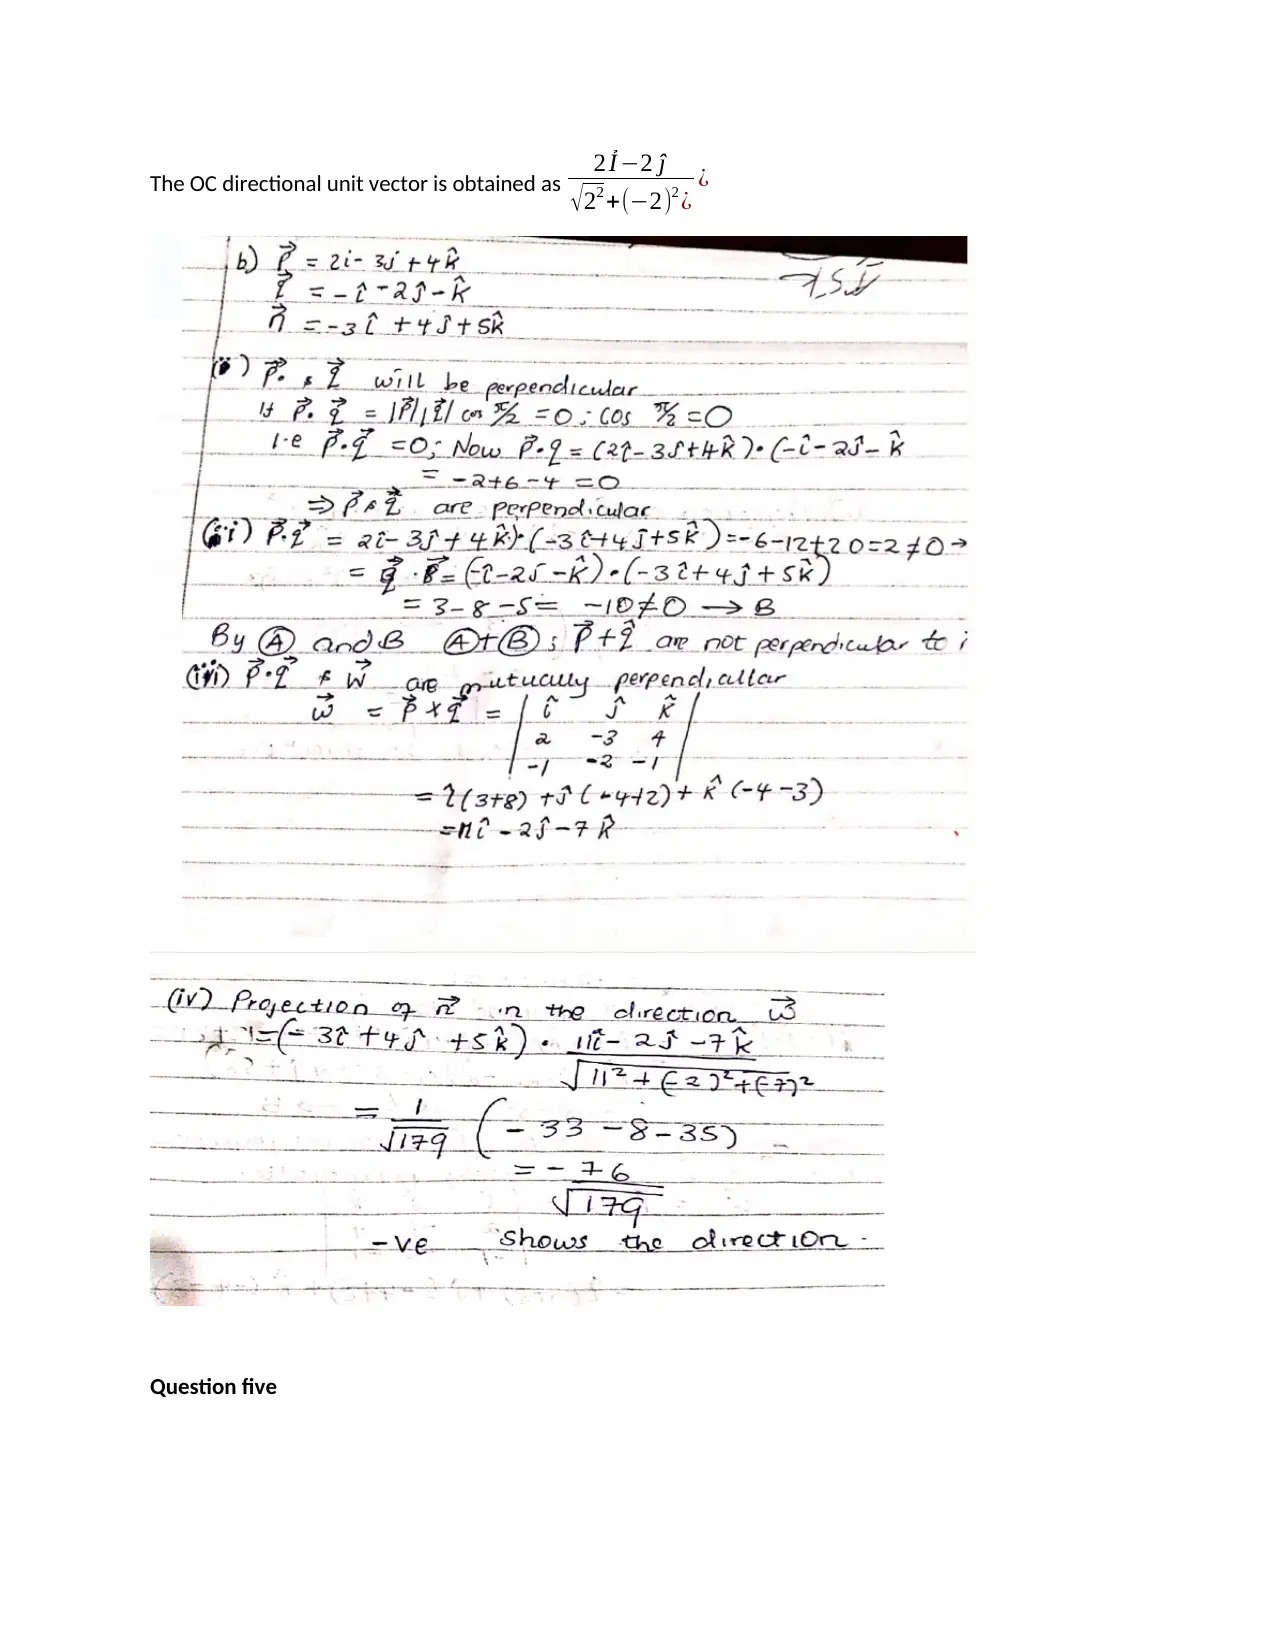 The OC directional unit vector is obtained as 2 İ −2 ĵ / √2² + (−2)² ¿ ¿
b) P⃗ = 2i - 3j + 4k̂
q⃗ = - î - 2ĵ - k̂
n⃗ = -3 î + 4ĵ + 5k̂
P⃗. & q⃗ will be perpendicular
If P⃗. q⃗ = |P⃗||q⃗| cos π/2 = 0 ; cos π/2 = 0
i.e P⃗.q⃗ = 0; Now P⃗.q = (2î - 3ĵ + 4k̂). (-î - 2ĵ - k̂
= -2+6-4 = 0
⇒ P⃗ & q⃗ are perpendicular
(ii) P⃗.q⃗ = 2î - 3ĵ + 4k̂). (-3î + 4ĵ + 5k̂) = -6-12+20 = 2 ≠ 0 →
= q⃗ . = (-î - 2j - k̂) . (-3î + 4ĵ + 5k̂)
= 3 - 8 - 5 = -10 ≠ 0 → B
By Ⓐ and B Ⓐ+Ⓑ ; P⃗ + q⃗ are not perpendicular to i
(iii) P⃗.q⃗ & w⃗ are mutually perpendicullar
w⃗ = P⃗ x q⃗ = | î ĵ k̂ |
2 -3 4
-1 -2 -1
= î (3+8) + ĵ (-4+2) + k̂ (-4-3)
= 11î - 2ĵ - 7k̂
(iv) Projection of n⃗ in the direction w⃗
= (- 3î + 4ĵ + 5k̂) . 11î - 2ĵ - 7k̂
√11² + (-2)² + (-7)²
= 1/√179 (- 33 - 8 - 35)
= - 76
√179
-ve shows the direction.
Question five